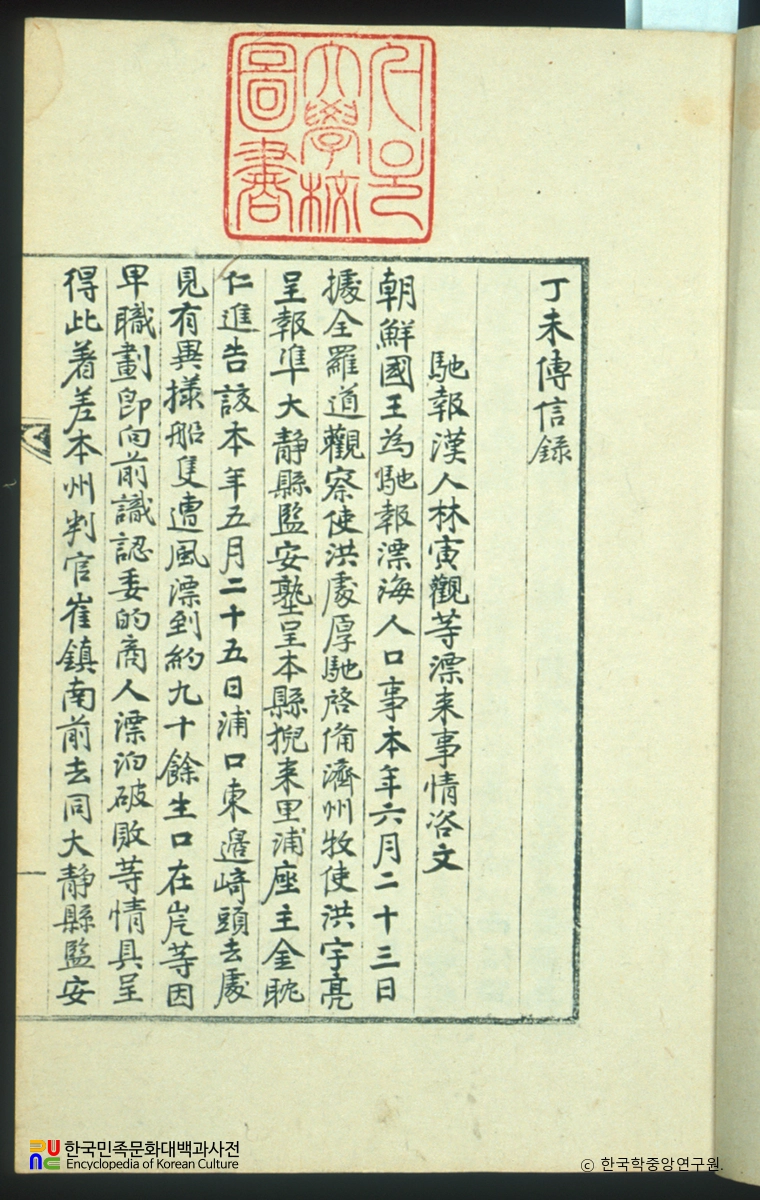 서울大學校圖書
丁未傳信錄
馳報漢人林寅觀等漂来事情咨文
朝鮮國王為馳報漂海人口事本年六月二十三日
據全羅道觀察使洪處厚馳啓備濟州牧使洪宇亮
呈報準大靜縣監安塾呈本縣猊来里浦座主金
仁進告該本年五月二十五日浦口東邊崎頭去處
見有異㨾船隻遭風漂到約九十餘生口在岸等因
卑職劃卽向前識認委的商人漂泊破敗等情具呈
得此着差本州判官崔鎮南前去同大静縣監安
한국민족문화대백과사전
Encyclopedia of Korean Culture
© 한국학중앙연구원.